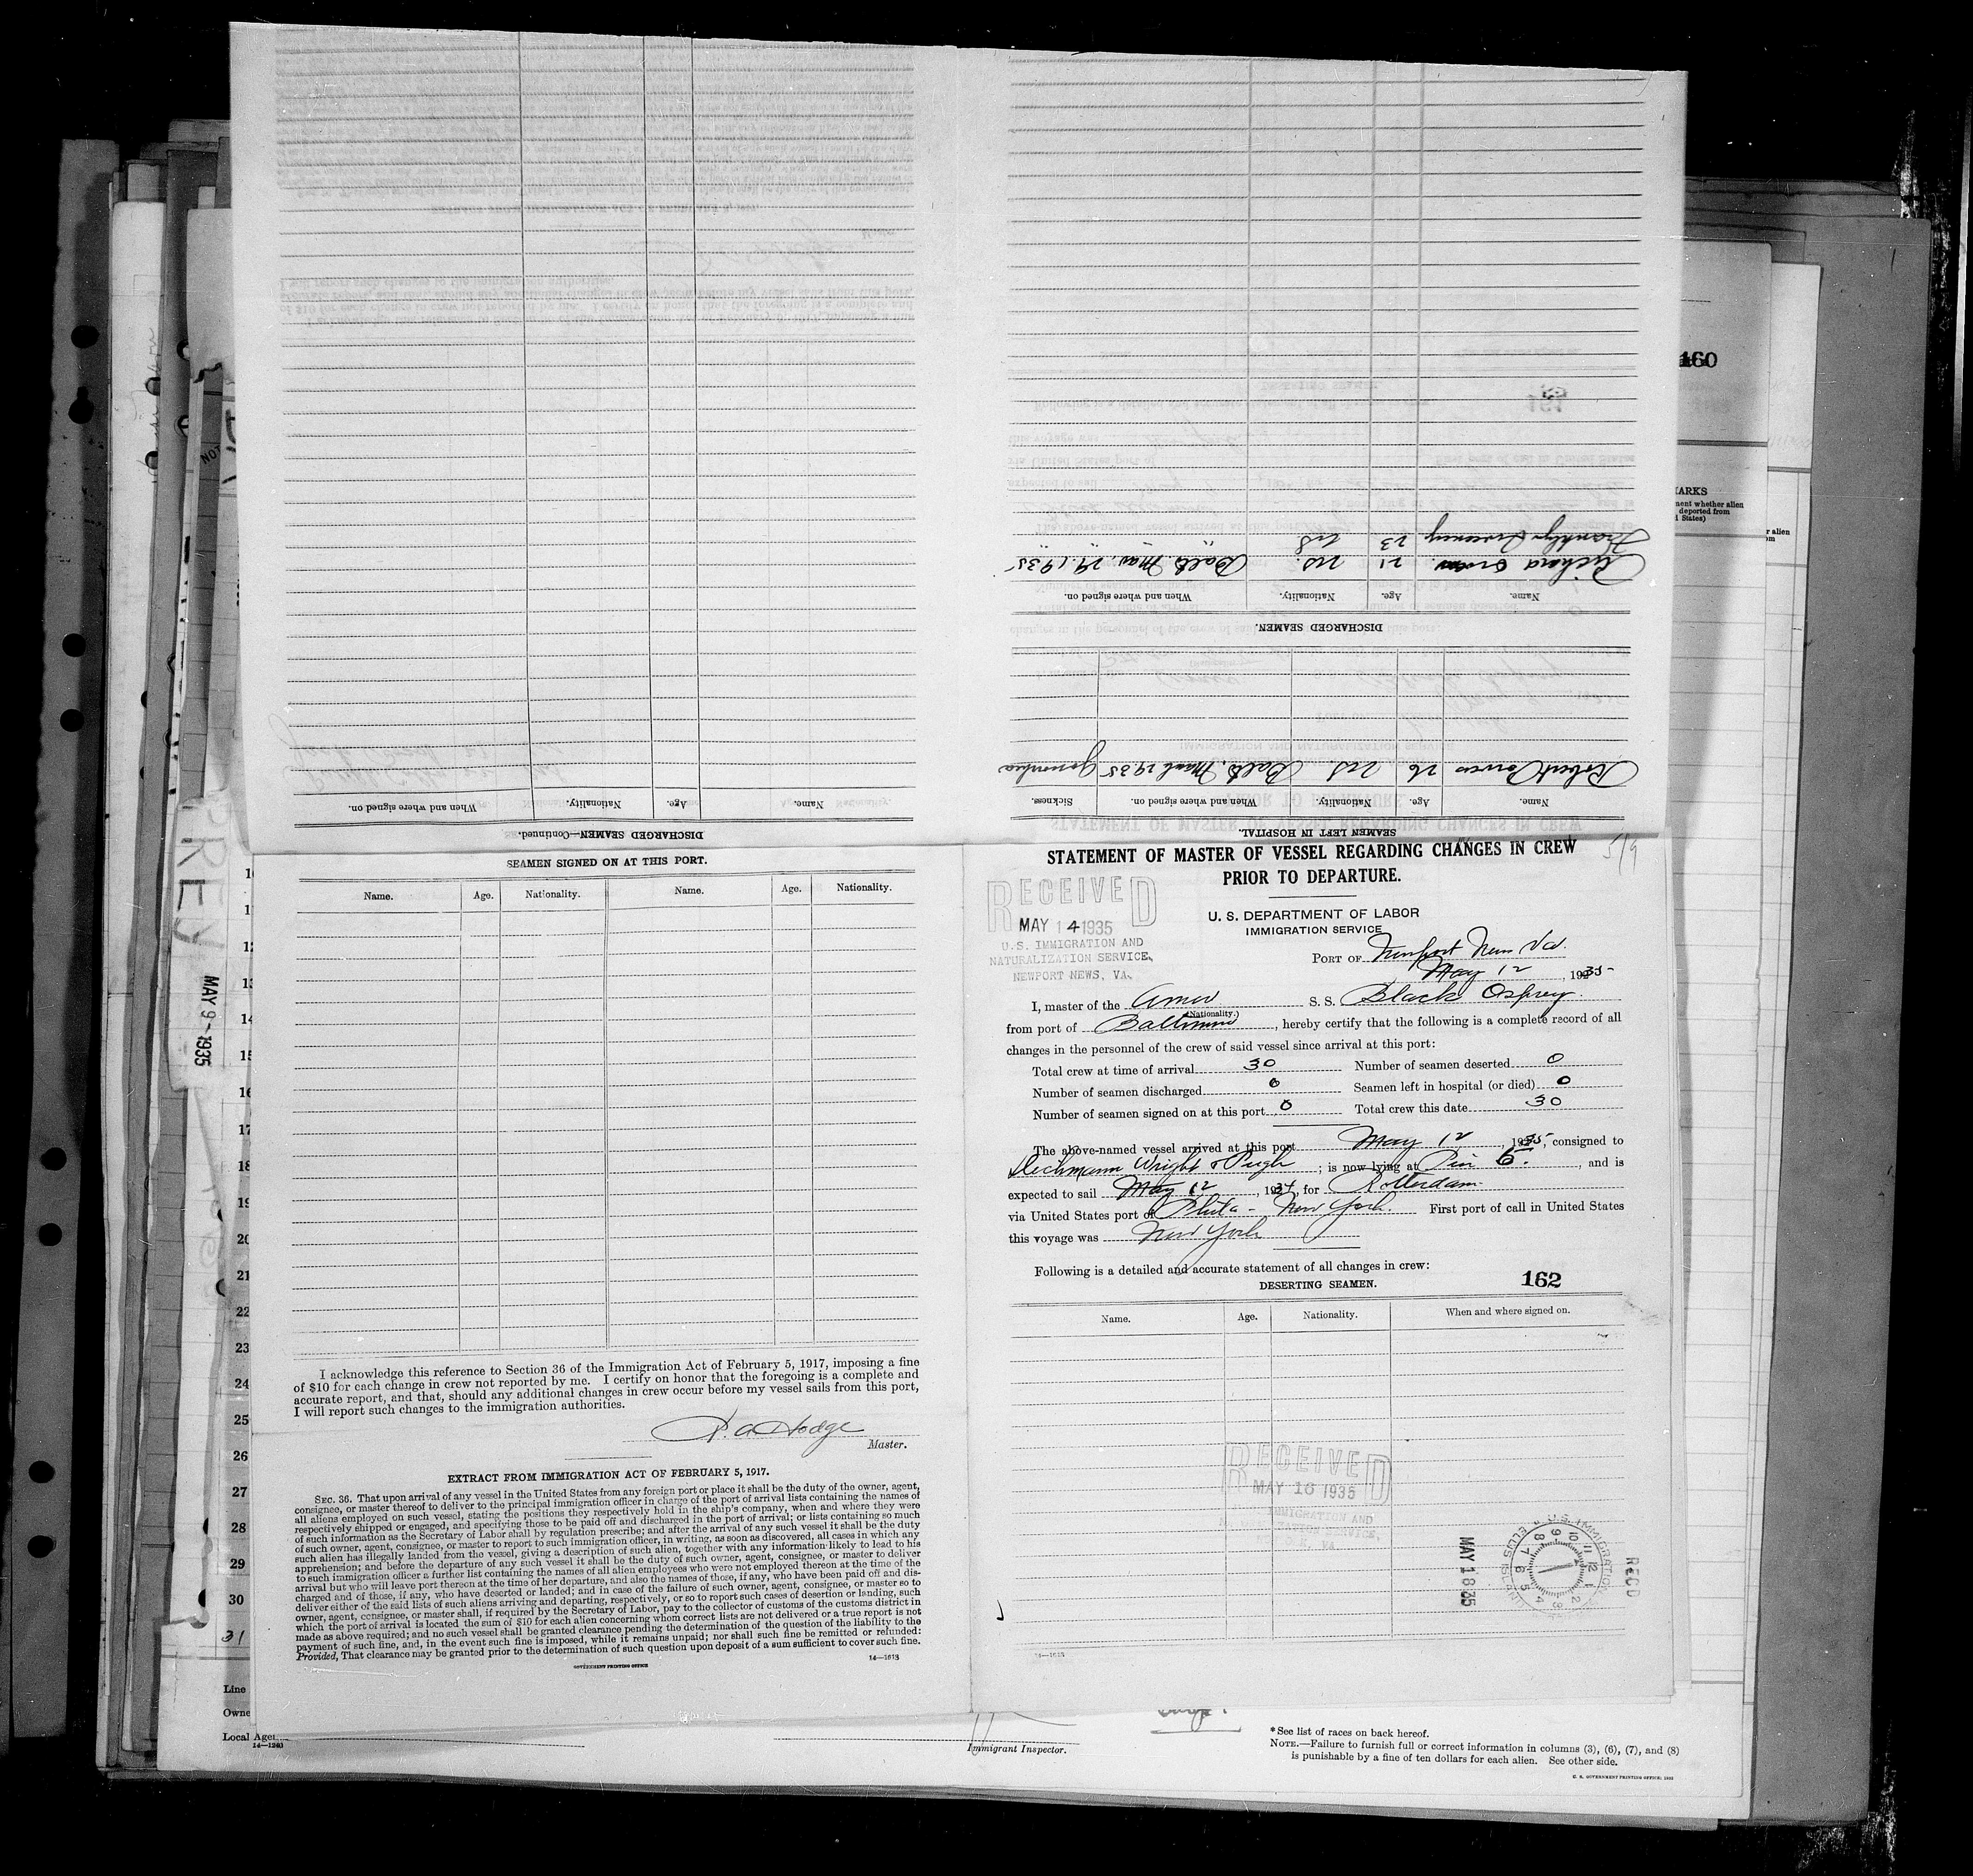 160
MARKS
ment whether alien
deported from
States)
r alien
om
DISCHARGED SEAMEN.
Name.
Age.
Nationality.
When and where signed on.
Richard
21
U.S.
Balto. Mar. 29, 1935
Franklyn Sweeney
23
US
" "
SEAMEN LEFT IN HOSPITAL.
Name.
Age.
Nationality.
When and where signed on.
Sickness.
Robert
26
US
Balto. 1935
DISCHARGED SEAMEN—Continued.
Name.
Age.
Nationality.
When and where signed on.
MAY 9-1935
SEAMEN SIGNED ON AT THIS PORT.
Name.
Age.
Nationality.
Name.
Age.
Nationality.
I acknowledge this reference to Section 36 of the Immigration Act of February 5, 1917, imposing a fine
of $10 for each change in crew not reported by me. I certify on honor that the foregoing is a complete and
accurate report, and that, should any additional changes in crew occur before my vessel sails from this port,
I will report such changes to the immigration authorities.
Hodge
Master.
EXTRACT FROM IMMIGRATION ACT OF FEBRUARY 5, 1917.
SEC. 36. That upon arrival of any vessel in the United States from any foreign port or place it shall be the duty of the owner, agent,
consignee, or master thereof to deliver to the principal immigration officer in charge of the port of arrival lists containing the names of
all aliens employed on such vessel, stating the positions they respectively hold in the ship's company, when and where they were
respectively shipped or engaged, and specifying those to be paid off and discharged in the port of arrival; or lists containing so much
of such information as the Secretary of Labor shall by regulation prescribe; and after the arrival of any such vessel it shall be the duty
of such owner, agent, consignee, or master to report to such immigration officer, in writing, as soon as discovered, all cases in which any
such alien has illegally landed from the vessel, giving a description of such alien, together with any information likely to lead to his
apprehension; and before the departure of any such vessel it shall be the duty of such owner, agent, consignee, or master to deliver
to such immigration officer a further list containing the names of all alien employees who were not employed thereon at the time of the
arrival but who will leave port thereon at the time of her departure, and also the names of those, if any, who have been paid off and dis-
charged and of those, if any, who have deserted or landed; and in case of the failure of such owner, agent, consignee, or master so to
deliver either of the said lists of such aliens arriving and departing, respectively, or so to report such cases of desertion or landing, such
owner, agent, consignee, or master shall, if required by the Secretary of Labor, pay to the collector of customs of the customs district in
which the port of arrival is located the sum of $10 for each alien concerning whom correct lists are not delivered or a true report is not
made as above required; and no such vessel shall be granted clearance pending the determination of the question of the liability to the
payment of such fine, and, in the event such fine is imposed, while it remains unpaid; nor shall such fine be remitted or refunded:
Provided, That clearance may be granted prior to the determination of such question upon deposit of a sum sufficient to cover such fine.
14—1613
GOVERNMENT PRINTING OFFICE
STATEMENT OF MASTER OF VESSEL REGARDING CHANGES IN CREW
PRIOR TO DEPARTURE.
5/9
RECEIVED
MAY 14 1935
U.S. IMMIGRATION AND
NATURALIZATION SERVICE,
NEWPORT NEWS, VA.
U. S. DEPARTMENT OF LABOR
IMMIGRATION SERVICE
PORT OF Newport News Va.
May 12, 1935
I, master of the Amer S. S. Black Osprey
(Nationality.)
from port of Baltimore, hereby certify that the following is a complete record of all
changes in the personnel of the crew of said vessel since arrival at this port:
Total crew at time of arrival 30 Number of seamen deserted 0
Number of seamen discharged 0 Seamen left in hospital (or died) 0
Number of seamen signed on at this port 0 Total crew this date 30
The above-named vessel arrived at this port May 12, 1935, consigned to
Dichmann Wright & Pugh; is now lying at Pier 6., and is
expected to sail May 12, 1934, for Rotterdam
via United States port of Phila - New York. First port of call in United States
this voyage was New York
Following is a detailed and accurate statement of all changes in crew:
DESERTING SEAMEN.
162
Name.
Age.
Nationality.
When and where signed on.
RECEIVED
MAY 16 1935
MAY 18 35
U.S. IMMIGRATION
ELLIS ISLAND
RECD
14—1613
10
11
12
13
14
15
16
17
18
19
20
21
22
23
24
25
26
27
28
29
30
31
Line
Owne
Local Agen
14—1240
Immigrant Inspector.
*See list of races on back hereof.
NOTE.—Failure to furnish full or correct information in columns (3), (6), (7), and (8)
is punishable by a fine of ten dollars for each alien. See other side.
U. S. GOVERNMENT PRINTING OFFICE: 1933